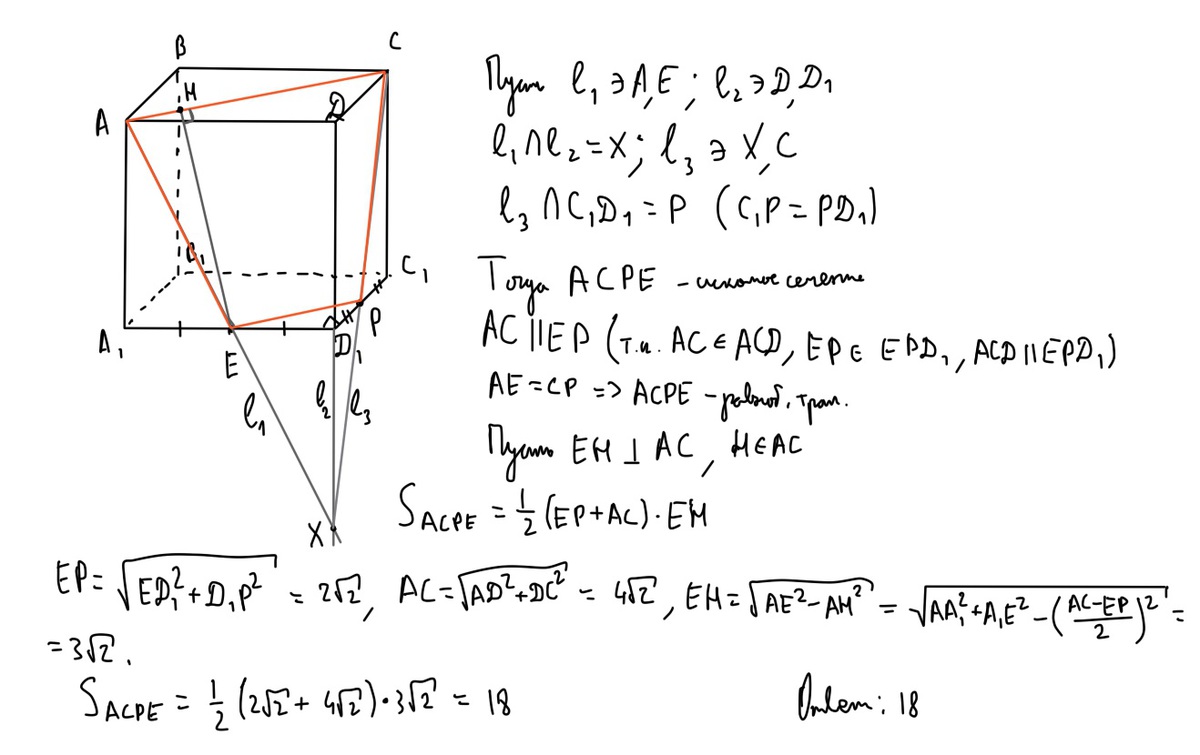 B
C
H
A
D
B₁
C₁
A₁
E
D₁
P
l₁
l₂
l₃
X
Пусть l₁ ∋ A, E ; l₂ ∋ D, D₁
l₁ ∩ l₂ = X ; l₃ ∋ X, C
l₃ ∩ C₁D₁ = P (C₁P = PD₁)
Тогда ACPE - искомое сечение
AC || EP (т.к. AC ∈ ACD, EP ∈ EPD₁, ACD || EPD₁)
AE = CP => ACPE - равноб. трап.
Пусть EH ⊥ AC, H ∈ AC
S_ACPE = 1/2 (EP + AC) · EH
EP = √(ED₁² + D₁P²) = 2√2, AC = √(AD² + DC²) = 4√2, EH = √(AE² - AH²) = √(AA₁² + A₁E² - ((AC - EP)/2)²) =
= 3√2.
S_ACPE = 1/2 (2√2 + 4√2) · 3√2 = 18
Ответ: 18